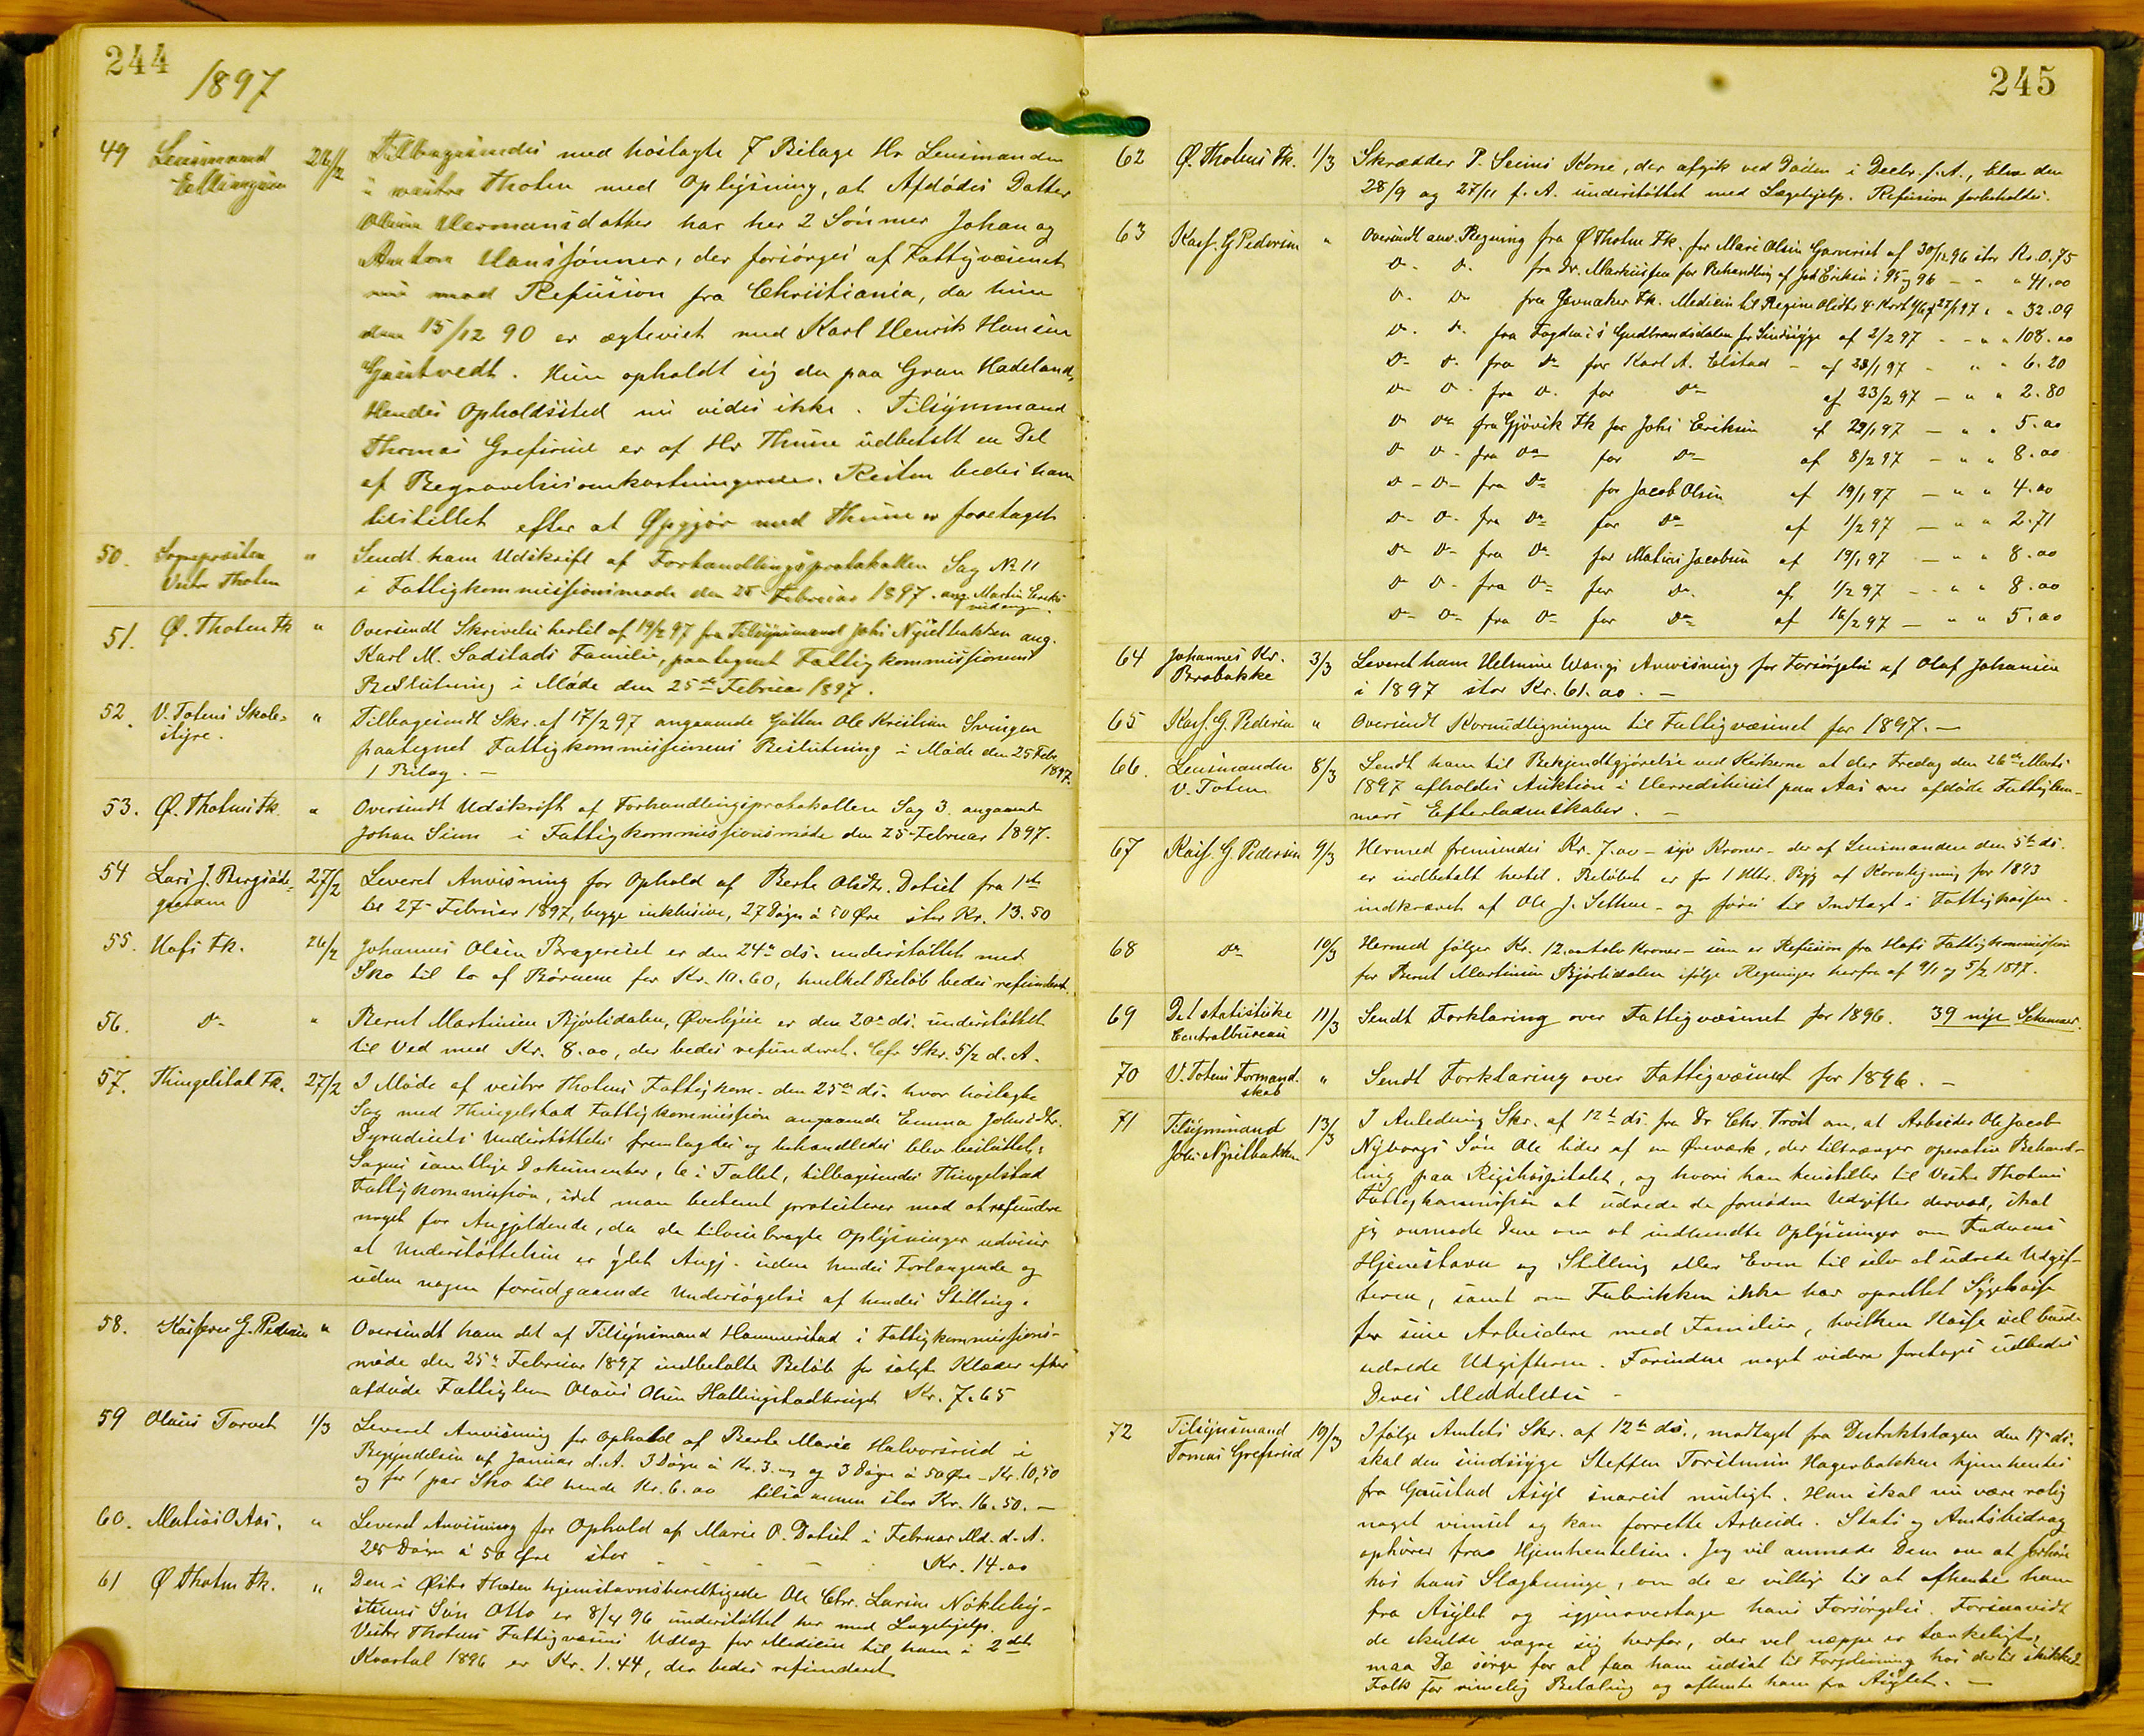 244
1897
49 Lensmand 26/2 Tilbagesendes med höslagte 7 Bilage Hr Lensmanden
i vestre Thoten med Oplysning, at Afdödes Datter
Hermansdatter har her 2 Sönner Johan og
Anton Hanssönner, der forsörges af Fattigvæsenet
nu mod Refusion fra Christiania, da hun
den 15/12 90 er ægteviet med Karl Henrik Hansen
Gjestvedt. Hun opholdt sig da paa Gran Hadeland,
Hendes Opholdssted nu vides ikke. Tilsynsmand
Thomas Grefsrud er af Hr Thune udbetalt en Del
af Begravelsesomkostningerne. Resten bedes ham
tilstillet efter at Opgjör med Thune er foretaget
50. Sognepresten " Sendt ham Udskrift af Forhandlingsprotokollen Sag No 11
Vestre Thoten i Fattigkommissionsmöde den 25 Februar 1897. ang. Martin Ereks
51. Ö. Thoten Fk " Oversendt Skrivelse hertil af 19/2 97 fra Tilsynsmand Johs Nysetbakken ang.
Karl M. Sadstads Familie, paategnet Fattigkommissionens
Beslutning i Möde den 25de Februar 1897.
52. V. Totens Skole= " Tilbagesendt Skr. af 17/2 97 angaaende Gutten Ole Kristian Svingen
styre. paategnet Fattigkommissionens Beslutning i Möde den 25 Febr.
1 Bilag. — 1897.
53. Ö. Thotens Fk. " Oversendt Udskrift af Forhandlingsprotokollen Sag 3. angaaende
Johan Sinn i Fattigkommissionsmöde den 25 Februar 1897.
54 Lars J. Bergsöde= 27/2 Leveret Anvisning for Ophold af Berte Olsdtr. Dotset fra 1ste
til 27 Februar 1897, begge inklusive, 27 Dögn á 50 Öre stor Kr. 13.50
55. Hofs Fk. 26/2 Johannes Olsen Bragereiet er den 24de ds. understöttet med
Sko til to af Börnene for Kr. 10.60, hvilket Belöb bedes refunderet.
56. Do " Bernt Martinsen Björlidalen, Överbyeie er den 20de ds. understöttet
til Ved med Kr. 8.00, der bedes refunderet. Cfr Skr. 5/2 d. A.
57. Thingelstad Fk. 27/2 I Möde af vestre Thotens Fattigkom. den 25de ds. hvor höslagte
Sag med Thingelstad Fattigkommission angaaende Emma Johnsdtr.
Understöttelse fremlagdes og behandledes blev besluttet:
Sagens samtlige Dokumenter, 6 i Tallet, tilbagesendes Thingelstad
Fattigkommission, idet man bestemt protesterer mod at refundere
noget for Angjeldende, da de tilveiebragte Oplysninger udviser
at Understöttelsen er ydet Angj. uden hendes Forlangende og
uden nogen forudgaaende Undersögelse af hendes Stilling.
58. Kasserer G. Pedersen " Oversendt ham det af Tilsynsmand Hammerstad i Fattigkommissions-
möde den 25de Februar 1897 indbetalte Belöb for solgte Klæder efter
afdöde Fattiglem Olaus Olsen Hallingstadkruget Kr. 7.65
59 Olaus Torvet 1/3 Leveret Anvisning for Ophold af Berte Marie Halvorsrud i
Begyndelsen af Januar d. A. 3 Dögn á Kr. 3.00 og 3 Dögn á 50 Öre - Kr. 10,50
og for 1 par Sko til hende Kr. 6.00 tilsammen stor Kr. 16.50. —
60. Matias O. Aas. " Leveret Anvisning for Ophold af Marie O. Dotset i Februar Md. d. A.
28 Dögn á 50 Öre stor - - - Kr. 14.00
61 Ö Thoten Fk. " Den i Östre Thoten hjemstavnsberettigede Ole Chr. Larsen Nöklebÿ-
Sön Otto er 8/4 96 understöttet her med Lægehjelp.
Vestre Thotens Fattigvæsens Udlæg for Medicin til ham i 2det
Kvartal 1896 er Kr. 1.44, der bedes refunderet
245
62 Ö. Thotens Fk. 1/3 Skrædder P. Seims Kone, der afgik ved Döden i Decbr. f. A., blev den
28/9 og 27/11 f. A. understöttet med Lægehjelp. Refusion forbeholdes.
63 Kass. G Pedersen " Oversendt anv. Regning fra Ö Thoten Fk. for Mari Olsen Garveriet af 30/12 96 stor Kr. 0.75
Do. Do. fra Dr. Markussen for Behandling af Joh Eriksen i 95 og 96 - " " 41.00
Do. Do fra Jevnaker Fk. Medicin til Regine Olsdtr 4. Kvrt 27/1 97 " " 32.09
Do. Do. fra Fogden i s Gudbrandsdalen for Sindssyge af 2/2 97 - " " 108.00
Do Do. fra Do for Karl A. Elstad - af 23/1 97 - " " 6.20
Do Do. fra Do. for Do af 23/2 97 - " " 2.80
Do Do fra Gjövik Fk for Johs Eriksen af 29/1 97 - " " 5.00
Do Do. fra Do for Do af 8/2 97 - " " 8.00
Do - Do - fra Do for Jacob Olsen af 19/1 97 - " " 4.00
Do. Do. fra Do for Do af 1/2 97 - " " 2.71
Do Do fra Do. for Matias Jacobsen af 19/1 97 - " " 8.00
Do Do. fra Do for Do. af 1/2 97 - " " 8.00
Do Do. fra Do for Do af 16/2 97 - " " 5.00
64 Johannes Kr. 3/3 Leveret ham Helmine Wangs Anvisning for Forsörgelse af Olaf Johansen
Brobakke i 1897 stor Kr. 61.00. —
65 Kass. G. Pedersen " Oversendt Kornudligningen til Fattigvæsenet for 1897. —
66. Lensmanden 8/3 Sendt ham til Bekjendtgjörelse ved Kirkerne at der Fredag den 26de Marts
V. Toten 1897 afholdes Auktion i Herredshuset paa Aas over afdöde Fattiglem-
mers Efterladenskaber. —
67 Kass. G. Pedersen 9/3 Hermed fremsendes Kr. 7.00 - syv Kroner - der af Lensmanden den 5te ds.
er indbetalt hertil. Belöbet er for 1 Hltr. Byg af Kornligning for 1893
indkrævet af Ole J. Sethne - og föres til Indtægt i Fattigkassen.
68 Do 10/3 Hermed fölger Kr. 12.00 tolv Kroner - som er Refusion fra Hofs Fattigkommission
for Bernt Martinsen Björlidalen ifölge Regninger herfra af 9/1 og 5/2 1897.
69 Det statistiske 11/3 Sendt Forklaring over Fattigvæsenet for 1896. 39 nye Schemaer.
Centralbureau
70 V. Totens Formand- " Sendt Forklaring over Fattigvæsenet for 1896. —
skab
71 Tilsynsmand 13/3 I Anledning Skr. af 12te ds. fra Dr Chr. Trost om, at Arbeider Ole Jacob
Johs Nysetbakken Nyborgs Sön Ole lider af en Öreverk, der tiltrænger operativ Behand-
ling paa Rigshospitalet, og hvori han henstiller til Vestre Thotens
Fattigkommission at udrede de fornödne Udgifter derved, skal
jeg anmode Dem om at indhente Oplysninger om Faderens
Hjemstavn og Stilling eller Evne til selv at udrede Udgif-
terne, samt om Fabrikken ikke har oprettet Sygekasse
for sine Arbeidere med Familier, hvilken Kasse vel burde
udrede Utgifterne. Forinden noget videre foretages udbedes
Deres Meddelelse -
72 Tilsynsmand 19/3 Ifölge Amtets Skr. af 12te ds., modtaget fra Distriktslægen den 17 ds.
Tomas Grefsrud skal den sindssyge Steffen Torstensen Hagerbakken hjemhentes
fra Gaustad Asyl snarest muligt. Han skal nu være rolig
noget vimset og kan forrette Arbeide. Stats og Amtsbidrag
ophörer fra Hjemhentelsen. Jeg vil anmode Dem om at forhöre
hos hans Slægtninge, om de er villige til at afhente ham
fra Asylet og igjenovertage hans Forsörgelse. Forsaavidt
de skulde vægre sig herfor, der vel neppe er tænkeligt,
maa De sörge for at faa ham udsat til Forpleining hos dertil skikkede
Folk for rimelig Betaling og afhente ham fra Asylet. —